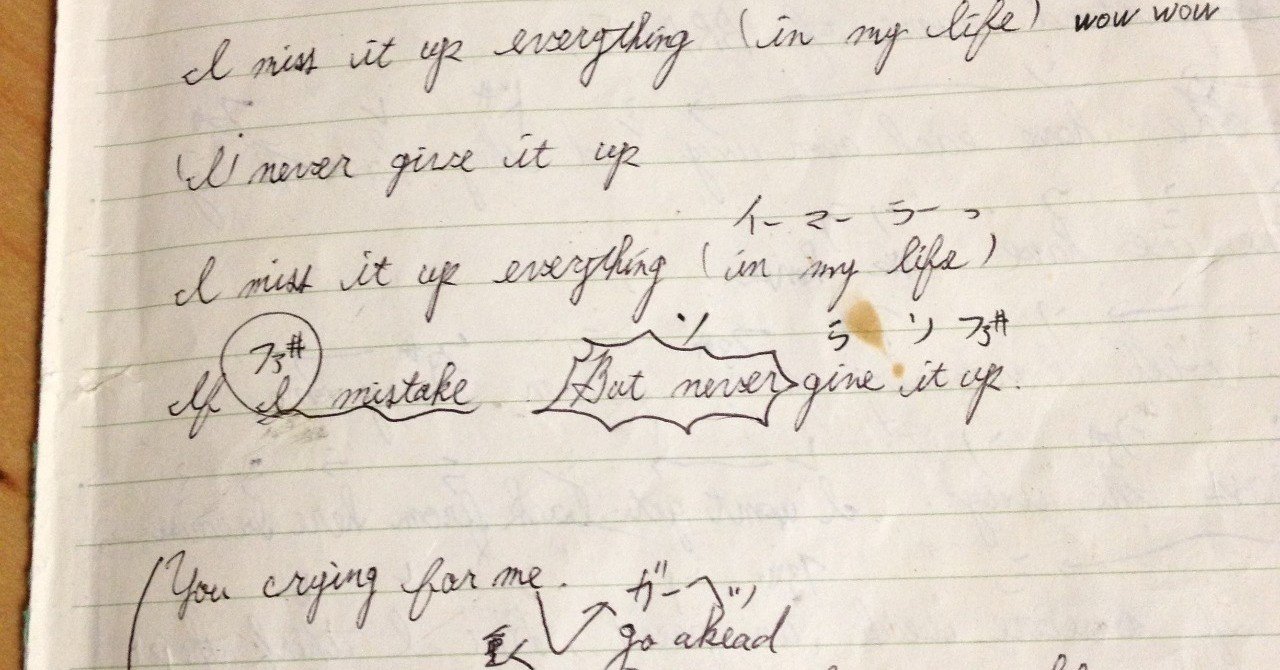 I miss it up everything (in my life) wow wow
(I) never give it up
イー マー ラーっ
I miss it up everything (in my life)
ソ ラ ソ ファ#
ファ#
If I mistake But never give it up.
(You crying for me.
go ahead
重く